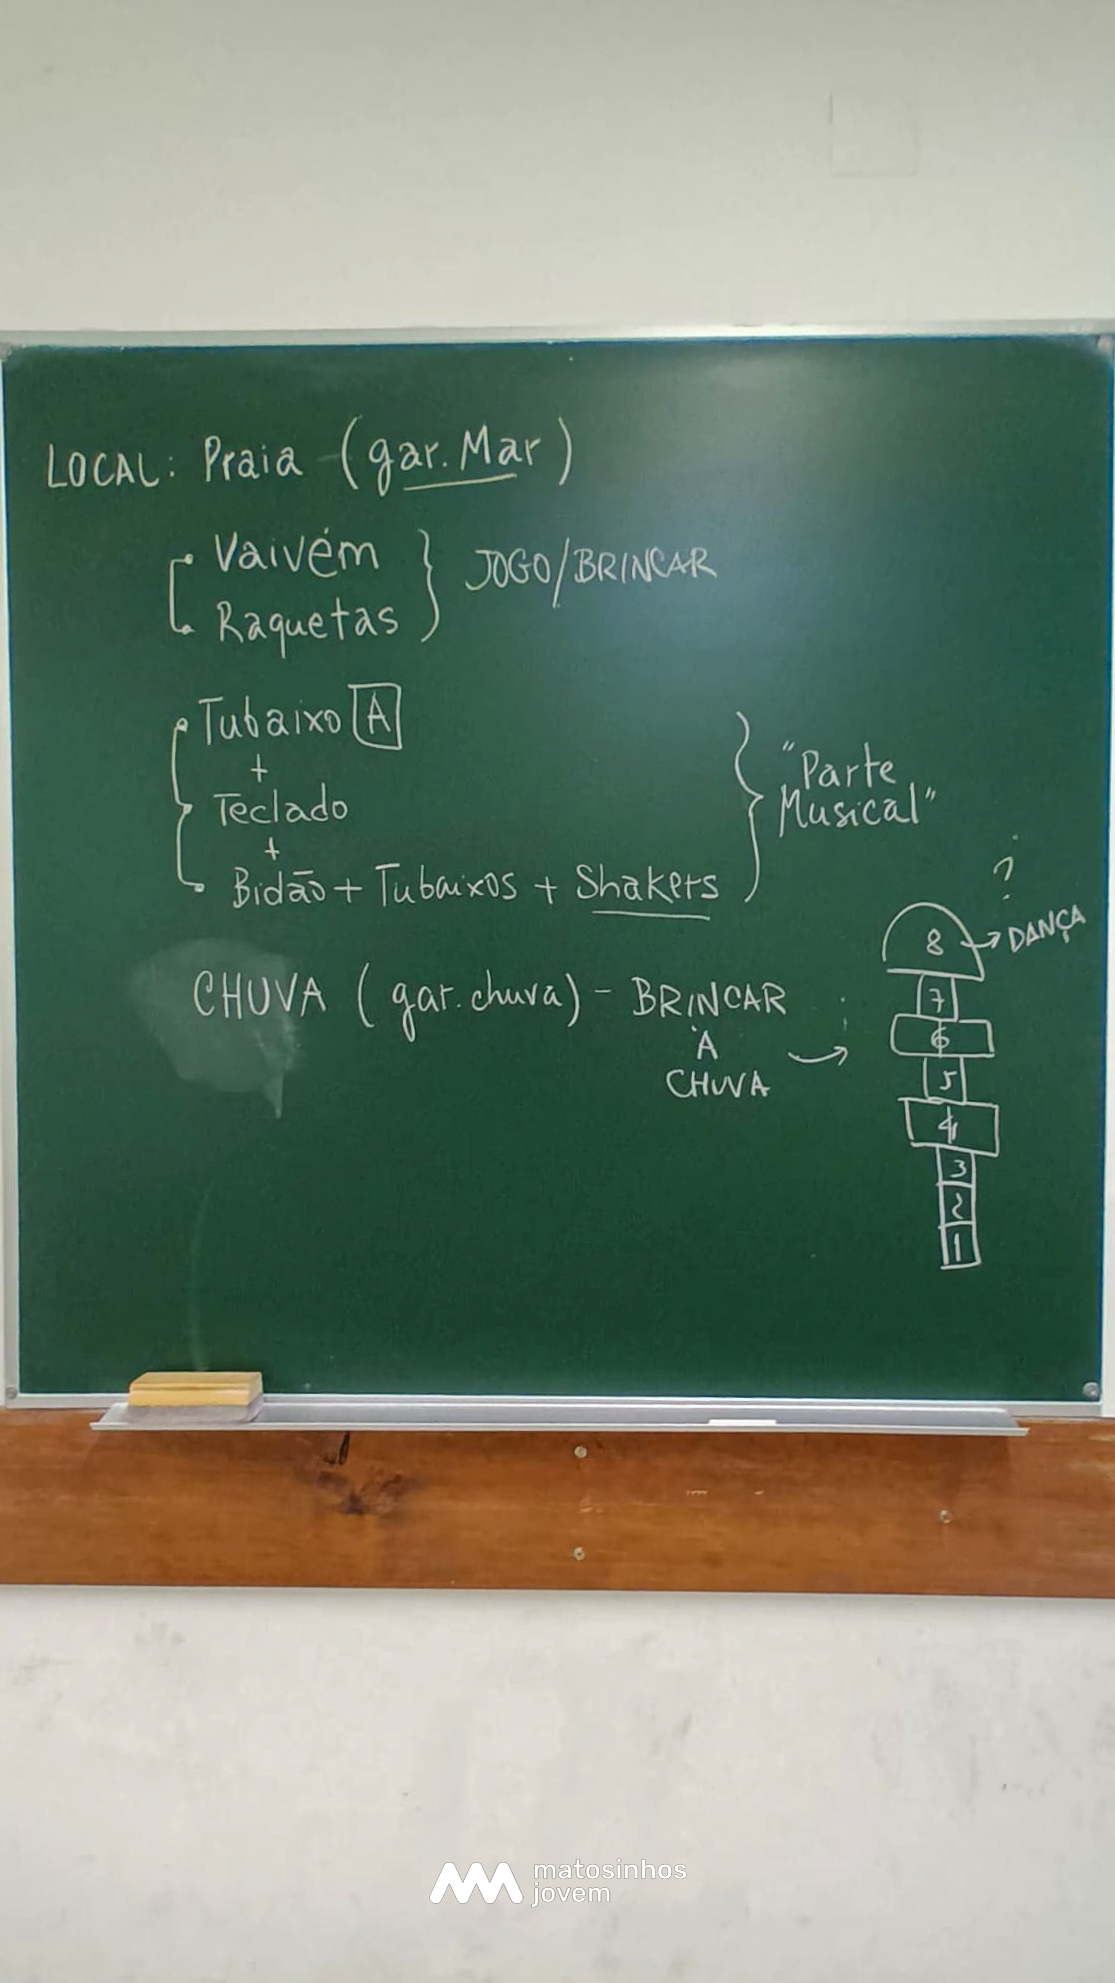 LOCAL: Praia (gar. Mar)
Vaivém
Raquetas
JOGO/BRINCAR
Tubaixo A
+
Teclado
+
Bidão + Tubaixos + Shakers
"Parte
Musical"
CHUVA (gar. chuva) - BRINCAR
À
CHUVA
?
8 → DANÇA
7
6
5
4
3
2
1
matosinhos
jovem